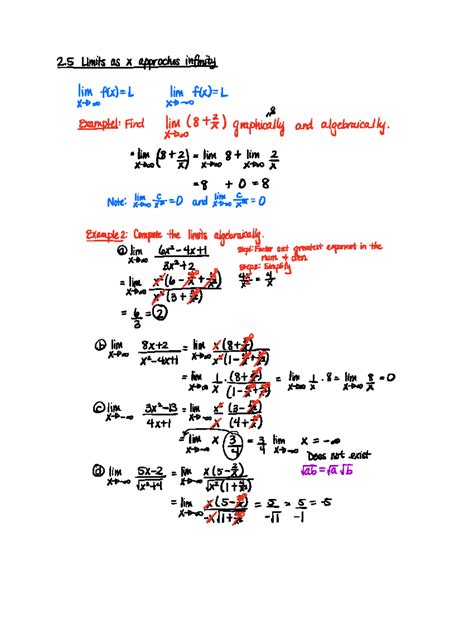 2.5 Limits as x approaches infinity
lim x→∞ f(x)=L lim x→-∞ f(x)=L
Example1: Find lim x→∞ (8 + 2/x) graphically and algebraically.
= lim x→∞ (8 + 2/x) = lim x→∞ 8 + lim x→∞ 2/x
= 8 + 0 = 8
Note: lim x→∞ = 0 and lim = 0
Example 2: Compute the limits algebraically.
ⓐ lim x→∞ (6x² - 4x + 1)/(3x² + 2)
Step1: Factor out greatest exponent in the
num + den
Step2: Simplify
= lim x→∞ x²(6 - )/x²(3 + )
4x/x² = 4/x
= 6/3 = 2
ⓑ lim x→∞ (8x+2)/(x²-4x+1) = lim x→∞ x(8 + )/x²(1 - )
= lim x→∞ 1/x · (8 + )/(1 - ) = lim x→∞ 1/x · 8 = lim x→∞ 8/x = 0
ⓒ lim x→-∞ (3x²-13)/(4x+1) = lim x→-∞ x²(3 - )/x(4 + )
= lim x→-∞ x (3/4) = 3/4 lim x→-∞ x = -∞
Does not exist
√ab = √a √b
ⓓ lim x→-∞ (5x-2)/√(x²+4) = lim x→-∞ x(5 - 2/x)/√(x²(1 + ))
= lim x→-∞ x(5 - )/-x√(1 + ) = 5/-√1 = 5/-1 = -5